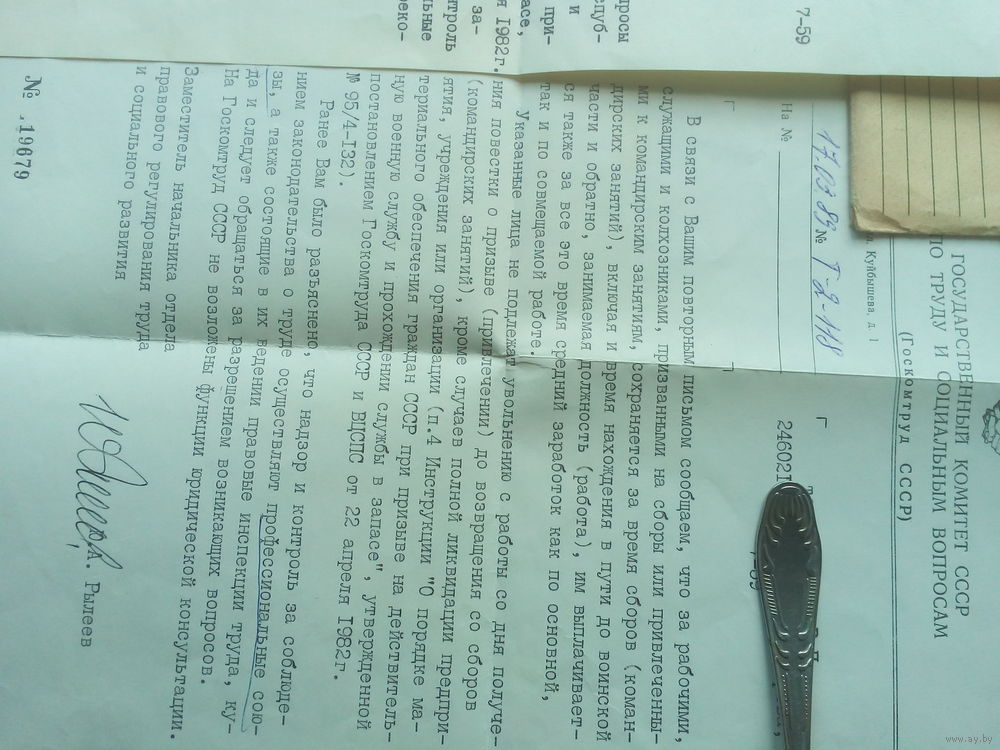 ГОСУДАРСТВЕННЫЙ КОМИТЕТ СССР
ПО ТРУДУ И СОЦИАЛЬНЫМ ВОПРОСАМ
(Госкомтруд СССР)
Куйбышева, д. 1
17.03.83 № Т-2-118
На №
24602I
7-59
В связи с Вашим повторным письмом сообщаем, что за рабочими,
служащими и колхозниками, призванными на сборы или привлеченны-
ми к командирским занятиям, сохраняется за время сборов (коман-
дирских занятий), включая и время нахождения в пути до воинской
части и обратно, занимаемая должность (работа), им выплачивает-
ся также за все это время средний заработок как по основной,
так и по совмещаемой работе.
Указанные лица не подлежат увольнению с работы со дня получе-
ния повестки о призыве (привлечении) до возвращения со сборов
(командирских занятий), кроме случаев полной ликвидации предпри-
ятия, учреждения или организации (п.4 Инструкции "О порядке ма-
териального обеспечения граждан СССР при призыве на действитель-
ную военную службу и прохождении службы в запасе", утвержденной
постановлением Госкомтруда СССР и ВЦСПС от 22 апреля I982г.
№ 95/4-I32).
Ранее Вам было разъяснено, что надзор и контроль за соблюде-
нием законодательства о труде осуществляют профессиональные сою-
зы, а также состоящие в их ведении правовые инспекции труда, ку-
да и следует обращаться за разрешением возникающих вопросов.
На Госкомтруд СССР не возложены функции юридической консультации.
Заместитель начальника отдела
правового регулирования труда
и социального развития
Рылеев
№ .19679
7-59
просы
спуб-
и
при-
асе,
я I982г.
за-
нтроль
льные
реко-
www.ay.by